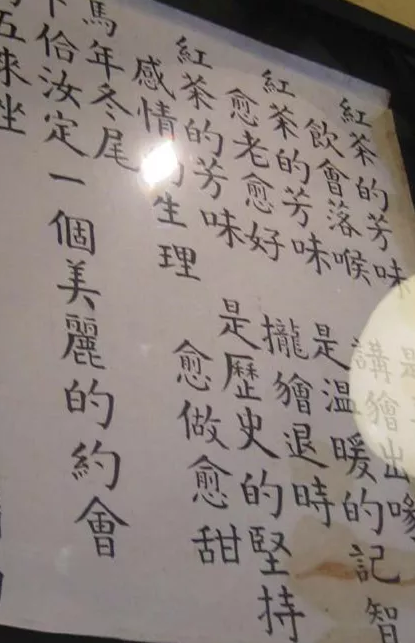 紅茶的芳味 是
飲會落喉 講𣍐出喙
紅茶的芳味 是溫暖的記智
愈老愈好 攏𣍐退時
紅茶的芳味 是歷史的堅持
感情 生理 愈做愈甜
馬年冬尾
佮汝定一個美麗的約會
五來坐